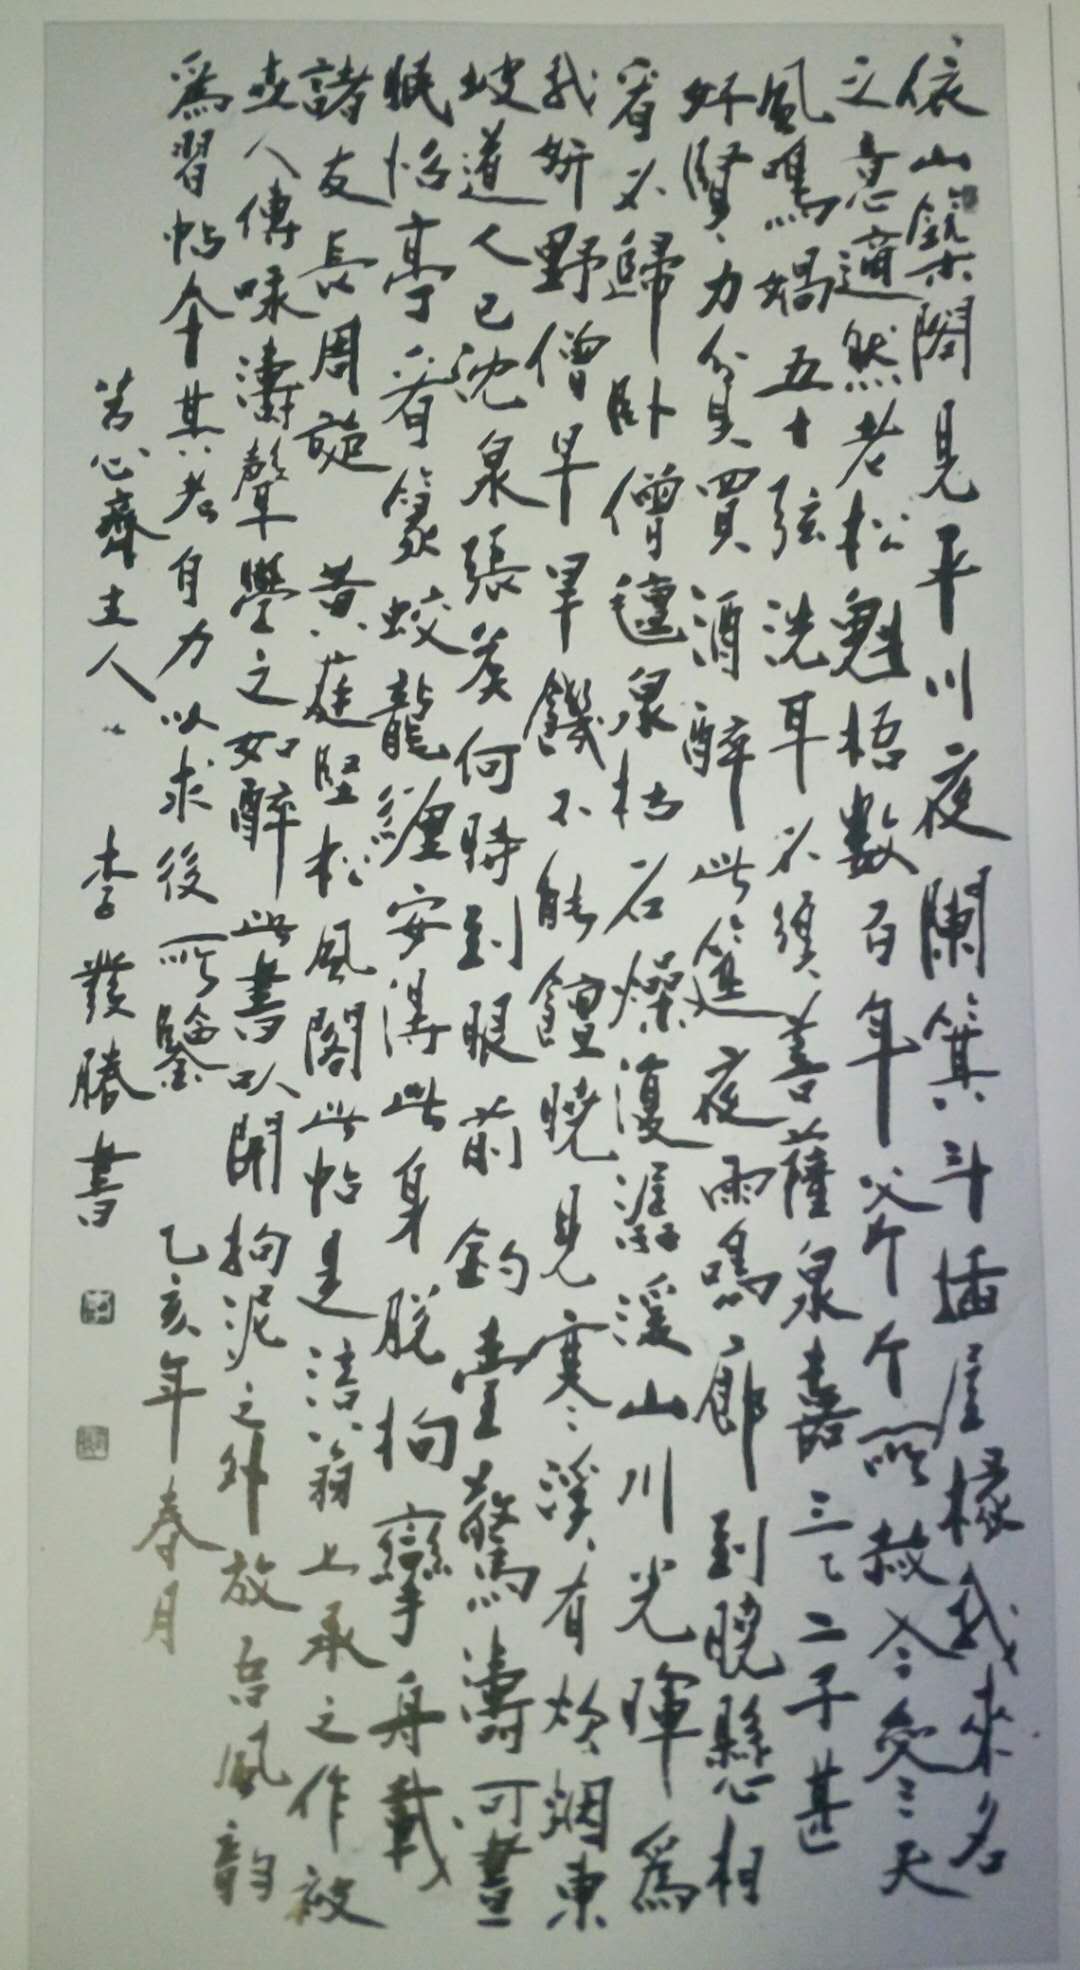 依山築閣見平川夜闌箕斗插屋椽我來名
之意適然老松魁梧數百年斧斤所赦今參天
風鳴媧五十弦洗耳不須菩薩泉嘉三二子甚
好賢力貧買酒醉此筵夜雨鳴廊到曉懸相
看不歸臥僧氈泉枯石燥復潺湲山川光暉為
我妍野僧早旱饑不能饘曉見寒溪有炊烟東
坡道人已沈泉張侯何時到眼前釣臺驚濤可晝
眠怡亭看篆蛟龍纏安得此身脫拘攣舟載
諸友長周旋 黃庭堅松風閣此帖是涪翁上承之作被
人傳味濤聲學之如醉此書以開拘泥之外放風韵
為習帖本其若自力以求後所鑒 乙亥年春月
心齋主人 李發勝書